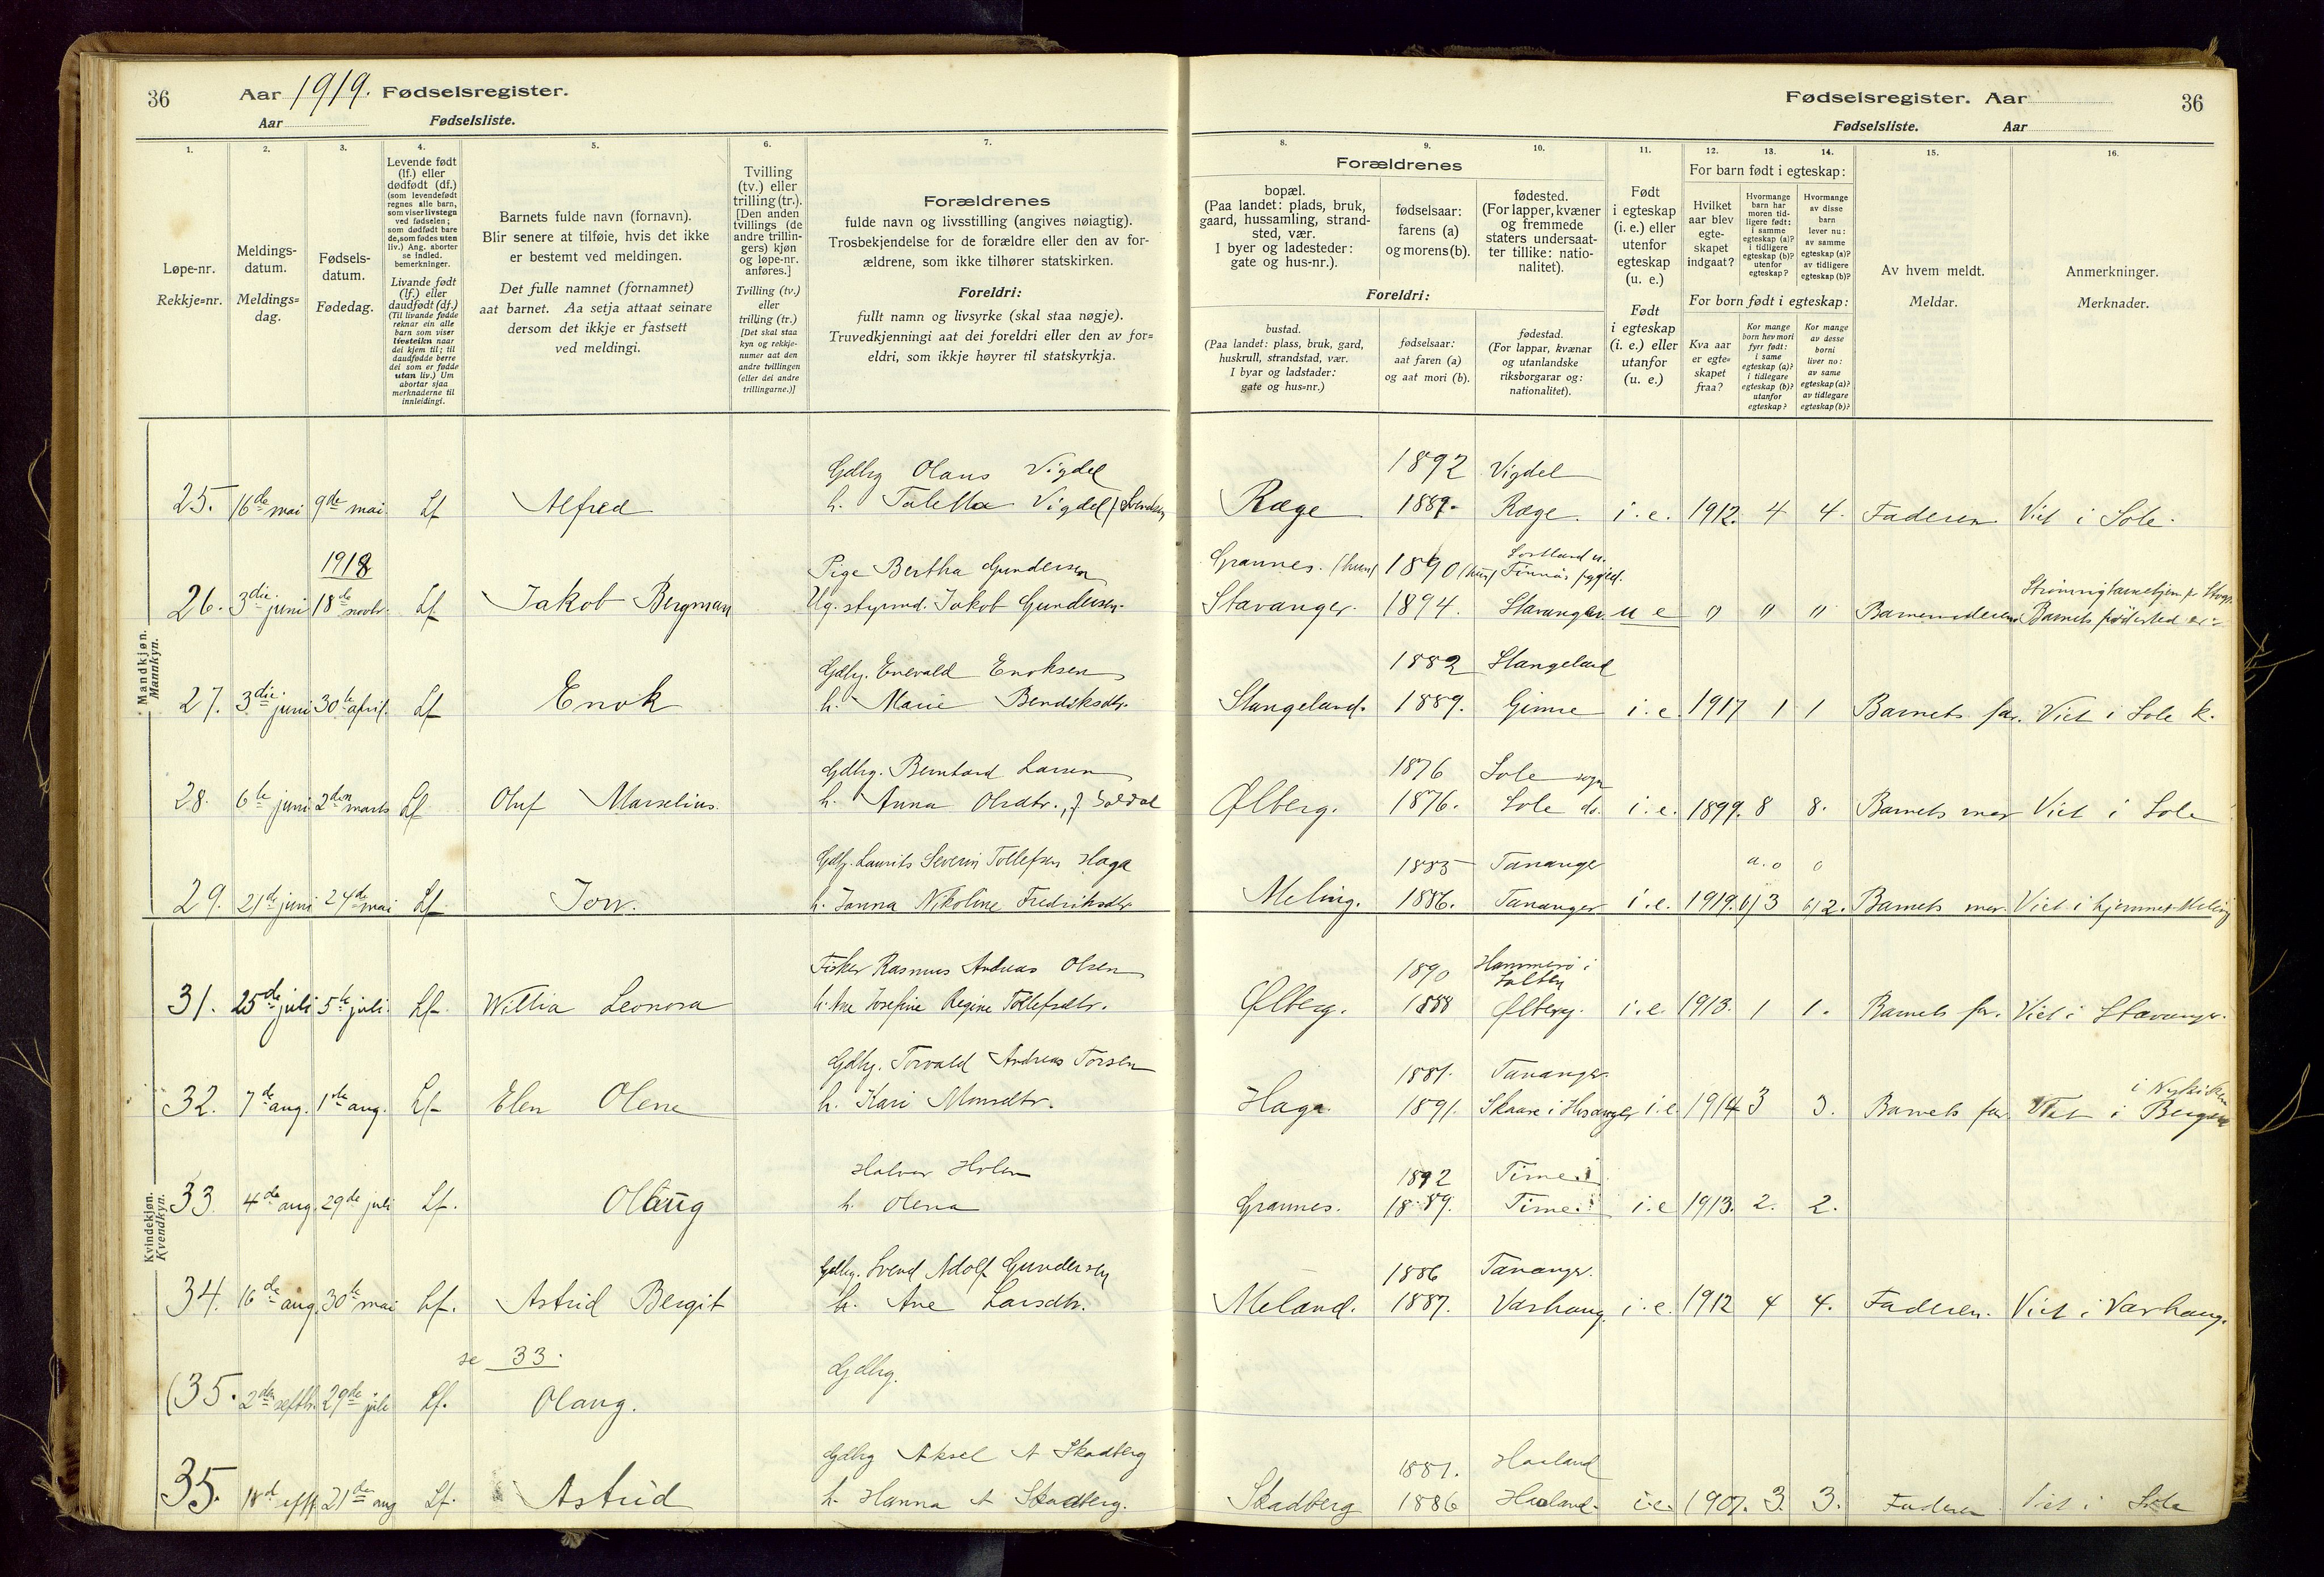 36 Aar 1919. Fødselsregister.
Aar Fødselsliste.
Fødselsregister. Aar 36
Fødselsliste. Aar
1. 2. 3. 4. 5. 6. 7.
8. 9. 10. 11. 12. 13. 14. 15. 16.
Løpe-nr.
Rekkje=nr.
Meldings-
datum.
Meldings=
dag.
Fødsels-
datum.
Fødedag.
Levende født
(lf.) eller
dødfødt (df.)
(som levendefødt
regnes alle barn,
som viser livstegn
ved fødselen;
som dødfødt bare
de, som fødes uten
liv.) Ang. aborter
se indled.
bemerkninger.
Livande født
(lf.) eller
daudfødt (df.)
(Til livande fødde
reknar ein alle
barn som viser
livsteikn naar
dei kjem til; til
daudfødde berre
dei som er fødde
utan liv.) Um
abortar sjaa
merknaderne til
innleidingi.
Barnets fulde navn (fornavn).
Blir senere at tilføie, hvis det ikke
er bestemt ved meldingen.
Det fulle namnet (fornamnet)
aat barnet. Aa setja attaat seinare
dersom det ikkje er fastsett
ved meldingi.
Tvilling
(tv.) eller
trilling (tr.).
[Den anden
tvillings (de
andre trillin-
gers) kjøn
og løpe-nr.
anføres.]
Tvilling (tv.)
eller
trilling (tr.)
[Det skal staa
kyn og rekkje-
numer aat den
andre tvillingen
(eller dei andre
trillingarne.)]
Forældrenes
fulde navn og livsstilling (angives nøiagtig).
Trosbekjendelse for de forældre eller den av for-
ældrene, som ikke tilhører statskirken.
Foreldri:
fullt namn og livsyrke (skal staa nøgje).
Truvedkjenningi aat dei foreldri eller den av for=
eldri, som ikkje høyrer til statskyrkja.
Forældrenes
bopæl.
(Paa landet: plads, bruk,
gaard, hussamling, strand-
sted, vær.
I byer og ladesteder:
gate og hus-nr.).
fødselsaar:
farens (a)
og morens (b).
fødested.
(For lapper, kvæner
og fremmede
staters undersaat-
ter tillike: natio-
nalitet).
Foreldri:
bustad.
(Paa landet: plass, bruk, gard,
huskrull, strandstad, vær.
I byar og ladstader:
gate og hus=nr.)
fødselsaar:
aat faren (a)
og aat mori (b).
fødestad.
(For lappar, kvænar
og utanlandske
riksborgarar og:
nationalitet).
Født
i egteskap
(i. e.) eller
utenfor
egteskap
(u. e.)
Født
i egteskap
(i. e.) eller
utanfor
(u. e.)
For barn født i egteskap:
Hvilket
aar blev
egte-
skapet
indgaat?
Hvormange
barn har
moren tid-
ligere født:
i samme
egteskap (a)?
i tidligere
egteskap (b)?
utenfor
egteskap?
Hvormange
av disse
barn
lever nu:
av samme
egteskap (a)?
av tidligere
egteskap (b)?
For born født i egteskap:
Kva aar
er egte=
skapet
fraa?
Kor mange
born hev mori
fyrr født:
i same
egteskap (a)?
i tidlegare
egteskap (b)?
utanfor
egteskap?
Kor mange
av desse
borni
liver no:
av same
egteskap (a)?
av tidlegare
egteskap (b)?
Av hvem meldt.
Meldar.
Anmerkninger.
Merknader.
Mandkjøn.
Mannkyn.
Gdbrg Olaus Vigdel 1892 Vigdel
25. 16de mai 9de mai Lf Alfred h. Taletta Vigdel f. Svendsen Ræge 1889. Ræge. i. e. 1912. 4 4. Faderen Viet i Sole.
1918 Pige Bertha Gundersen Grannes. (hun) 1890 (hun)
26. 3die juni 18de novbr. Lf Jakob Bergman Ug. styrmd. Jakob Gundersen. Stavanger. 1894. Stavanger u e " " " Barnemoderen Barnets fødested er:
Gdbrg. Enevald Enoksen 1882 Stangeland
27. 3die juni 30te april. Lf Enok h. Marie Bendiksdtr. Stangeland. 1889. Gimre i. e. 1917 1 1 Barnets far. Viet i Sole k.
Gdbrg. Berntard Larsen 1876 Sole sogn
28. 6te juni 2den marts Lf Oluf Marselius. h. Anna Olsdtr., f. Soldal Ølberg. 1876. Sole do. i. e. 1899. 8 8. Barnets mor Viet i Sole
Gdbrg. Laurits Severin Tollefsen Haga 1885 Tananger a. 0 0
29. 21de juni 24de mai Lf Tory. h. Janna Nikoline Fredriksdtr. Meling. 1886. Tananger i. e. 1919. b) 3 b) 2. Barnets mor. Viet i hjemmet Meling
Kvindekjøn.
Kvendkyn.
Fisker Rasmus Andreas Olsen 1890 Hammerø i Salten
31. 25de juli 5te juli Lf Willia Leonora h. Ane Josefine Regine Tollefsdtr. Ølberg. 1888 Ølberg. i. e. 1913. 1 1. Barnets far. Viet i Stavanger.
Gdbrg. Torvald Andreas Torsen 1881. Tananger.
32. 7de aug. 1ste aug. Lf Elen Olene h. Kari Monsdtr. Haga. 1891. Skaare i Hosanger i. e. 1914 3 3. Barnets far Viet i Nykirken i Bergen
Halvor Holen 1892 Time
33 4de aug. 29de juli Lf. Olaug h. Olena Grannes. 1889. Time. i. e 1913. 2. 2.
Gdbrg. Svend Adolf Gundersen 1886 Tananger.
34. 16de aug. 30te mai Lf. Astrid Bergit h. Ane Larsdtr. Meland. 1887. Varhaug. i. e. 1912 4 4. Faderen. Viet i Varhaug.
se 33. Gdbrg.
(35. 2den septbr. 29de juli Lf. Olaug.
Gdbrg Aksel A Skadberg 1881. Haaland
35. 18de sept. 21de aug Lf. Astrid h. Hanna A Skadberg. Skadberg 1886 Haaland. i. e. 1907. 3. 3. Faderen Viet i Sole